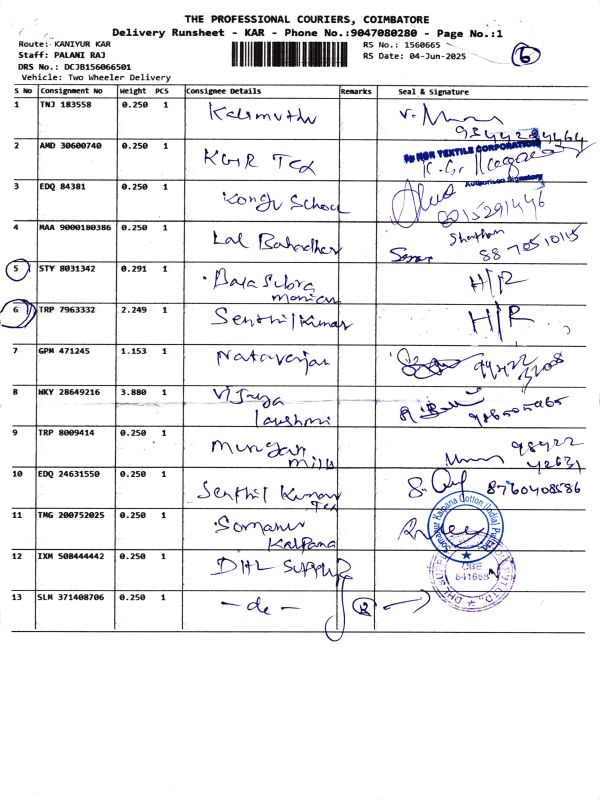 THE PROFESSIONAL COURIERS, COIMBATORE
Delivery Runsheet - KAR - Phone No.:9047080280 - Page No.:1
Route: KANIYUR KAR
Staff: PALANI RAJ
DRS No.: DCJB156066501
Vehicle: Two Wheeler Delivery
RS No.: 1560665
RS Date: 04-Jun-2025
6
S No Consignment No Weight PCS Consignee Details Remarks Seal & Signature
1 TNJ 183558 0.250 1 Kalimuthu
2 AMD 30600740 0.250 1 KGR Tex
For KGR TEXTILE CORPORATION
Authorised Signatory
3 EDQ 84381 0.250 1 Kongu School
4 MAA 9000180386 0.250 1 Lal Bahadhur
88 70510115
5 STY 8031342 0.291 1 Bala Subra
manian
H/R
6 TRP 7963332 2.249 1 Senthil Kumar H/R
7 GPM 471245 1.153 1 Natarajan
8 WKY 28649216 3.880 1 Vijaya
lakshmi
9 TRP 8009414 0.250 1 Murugan
mills
98422
42631
10 EDQ 24631550 0.250 1 Senthil Kumar
Tex
8760408586
11 TMG 200752025 0.250 1 Somanur
Kalpana
Somanur Kalpana Cotton (India) Pvt Ltd
12 IXM 508444442 0.250 1 DHL Supply
CBE
641668
13 SLM 371408706 0.250 1 - do -